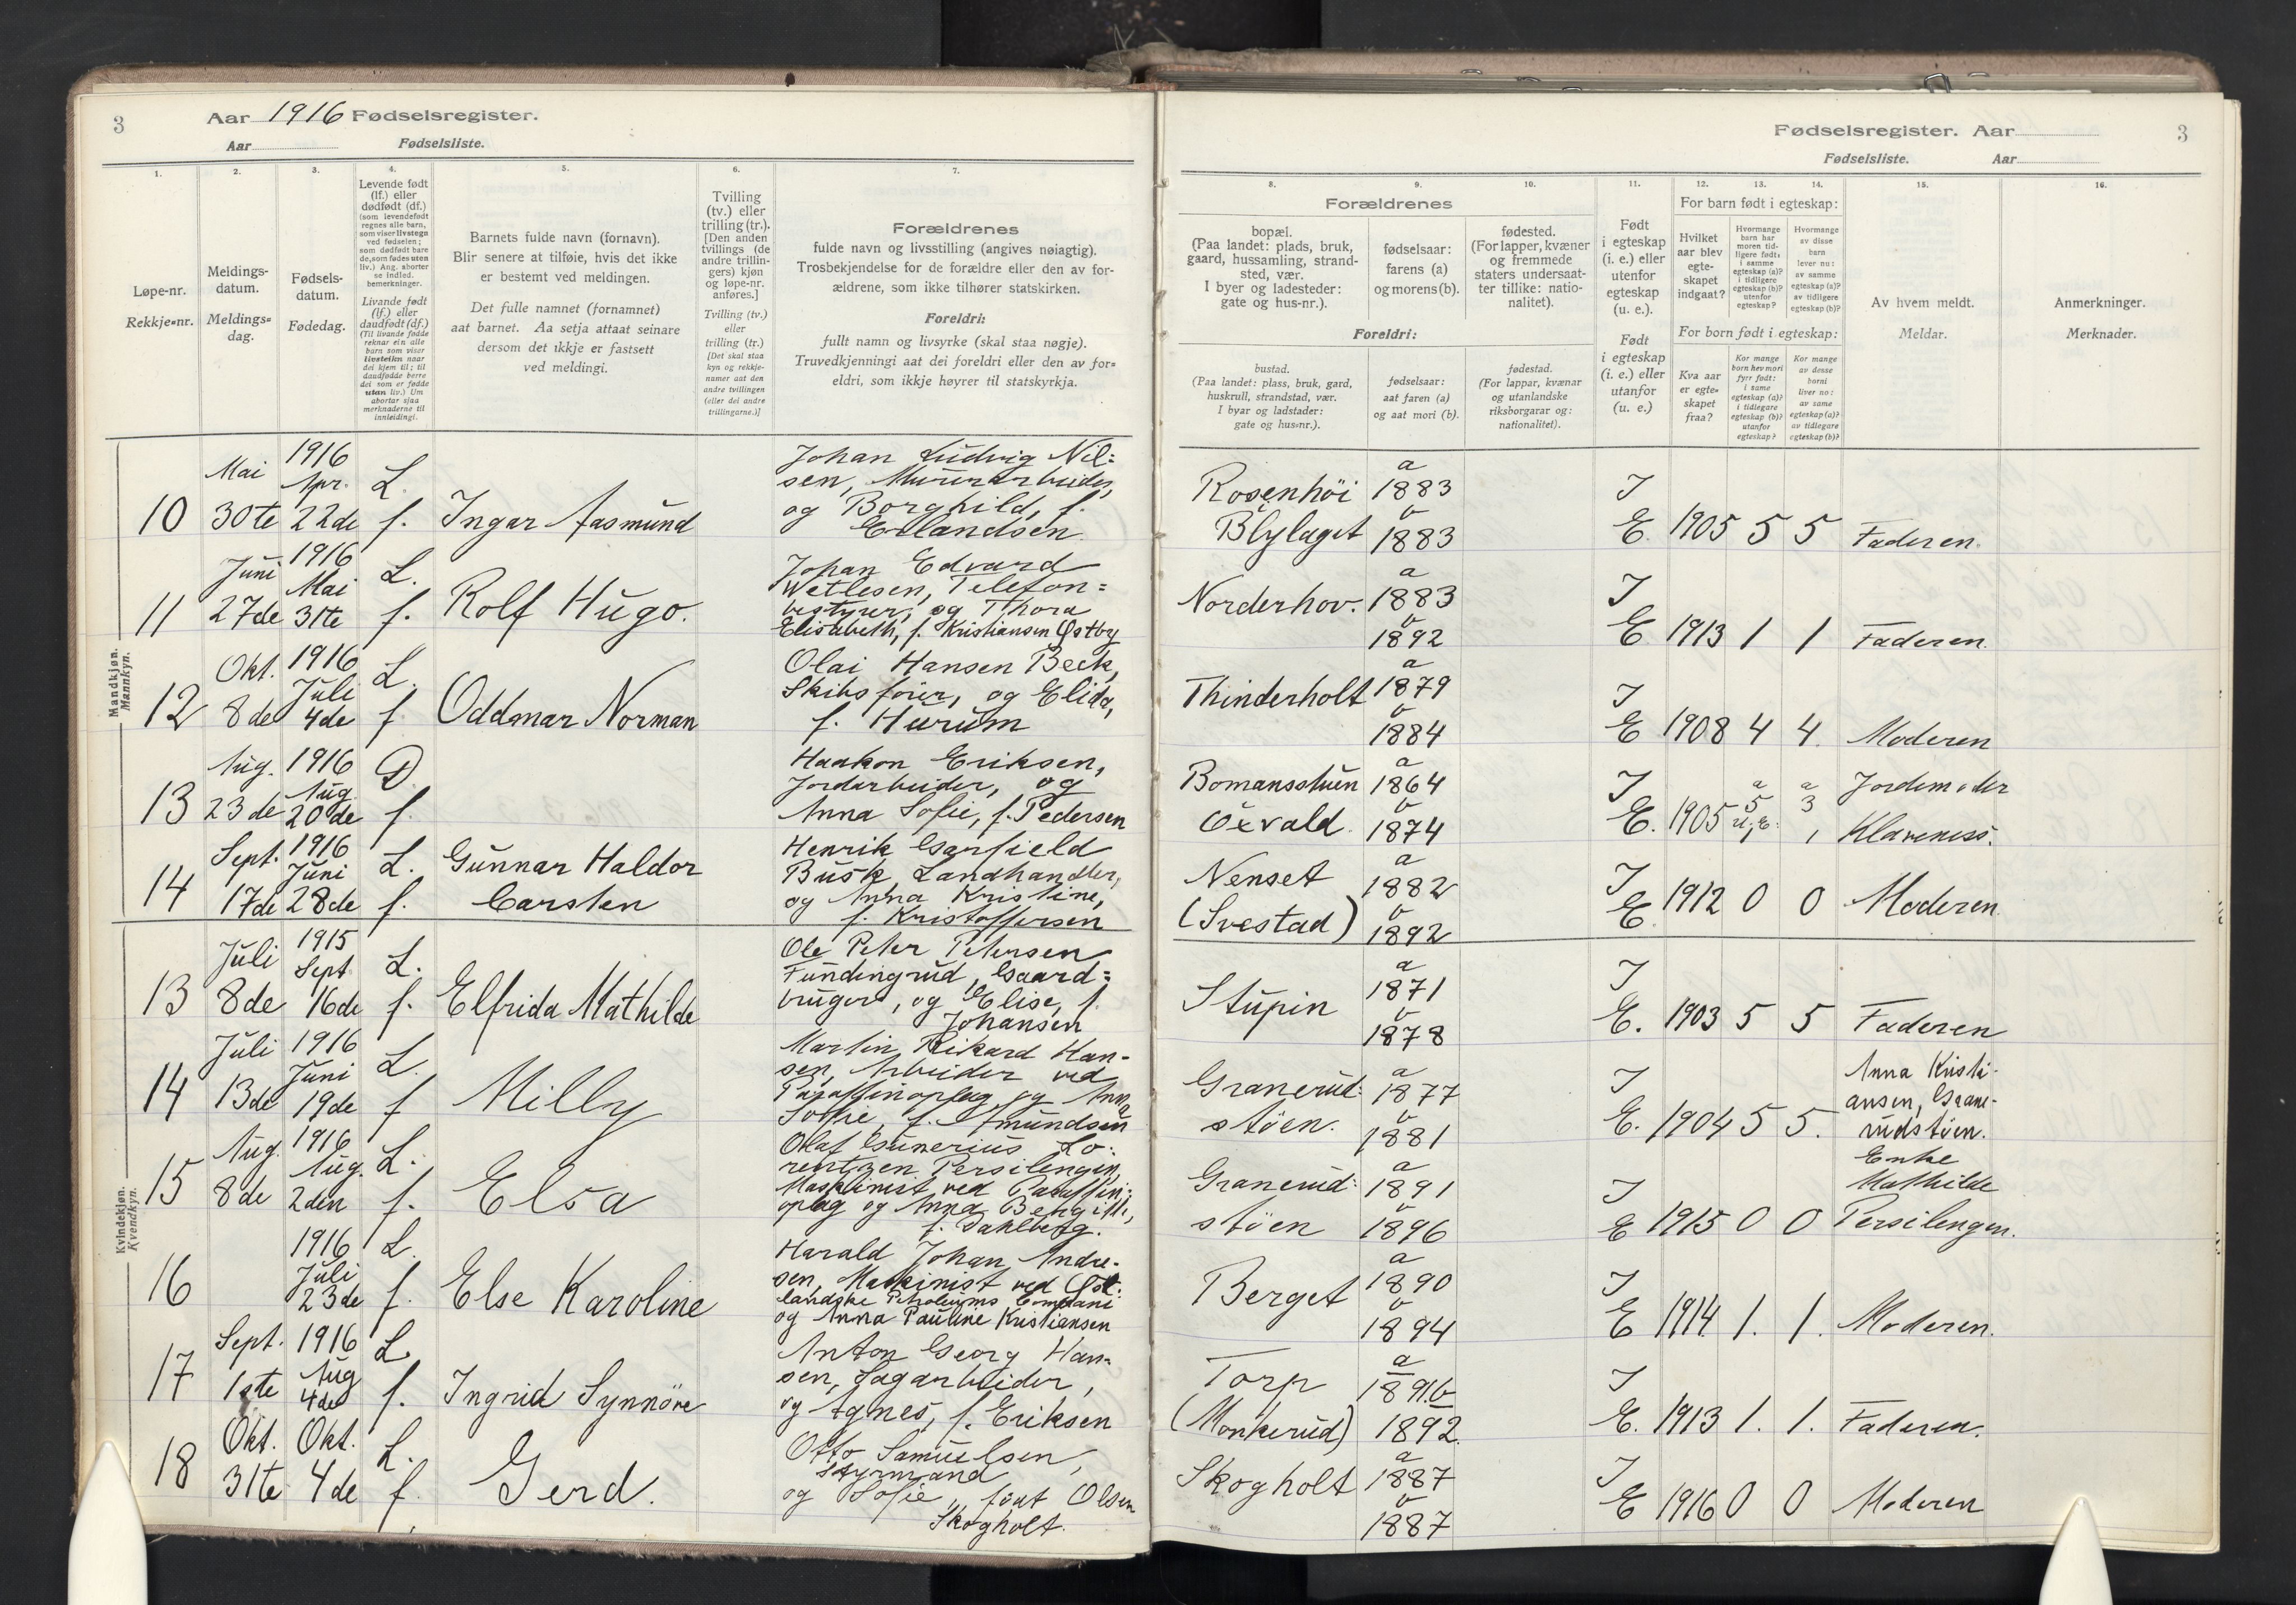 3
Aar 1916 Fødselsregister.
Aar Fødselsliste.
Fødselsregister. Aar
3
Fødselsliste. Aar
1.
Løpe-nr.
Rekkje=nr.
2.
Meldings-
datum.
Meldings=
dag.
3.
Fødsels-
datum.
Fødedag.
4.
Levende født
(lf.) eller
dødfødt (df.)
(som levendefødt
regnes alle barn,
som viser livstegn
ved fødselen;
som dødfødt bare
de, som fødes uten
liv.) Ang. aborter
se indled.
bemerkninger.
Livande født
(lf.) eller
daudfødt (df.)
(Til livande fødde
reknar ein alle
barn som viser
livsteikn naar
dei kjem til; til
daudfødde berre
dei som er fødde
utan liv.) Um
abortar sjaa
merknaderne til
innleidingi.
5.
Barnets fulde navn (fornavn).
Blir senere at tilføie, hvis det ikke
er bestemt ved meldingen.
Det fulle namnet (fornamnet)
aat barnet. Aa setja attaat seinare
dersom det ikkje er fastsett
ved meldingi.
6.
Tvilling
(tv.) eller
trilling (tr.).
[Den anden
tvillings (de
andre trillin-
gers) kjøn
og løpe-nr.
anføres.]
Tvilling (tv.)
eller
trilling (tr.)
[Det skal staa
kyn og rekkje-
namer aat den
andre tvillingen
(eller dei andre
trillingarne.)]
7.
Forældrenes
fulde navn og livsstilling (angives nøiagtig).
Trosbekjendelse for de forældre eller den av for-
ældrene, som ikke tilhører statskirken.
Foreldri:
fullt namn og livsyrke (skal staa nøgje).
Truvedkjenningi aat dei foreldri eller den av for=
eldri, som ikkje høyrer til statskyrkja.
Forældrenes
8.
bopæl.
(Paa landet: plads, bruk,
gaard, hussamling, strand-
sted, vær.
I byer og ladesteder:
gate og hus-nr.).
9.
fødselsaar:
farens (a)
og morens (b).
10.
fødested.
(For lapper, kvæner
og fremmede
staters undersaat-
ter tillike: natio-
nalitet).
Foreldri:
bustad.
(Paa landet: plass, bruk, gard,
huskrull, strandstad, vær.
I byar og ladstader:
gate og hus=nr.).
fødselsaar:
aat faren (a)
og aat mori (b).
fødestad.
(For lappar, kvænar
og utanlandske
riksborgarar og:
nationalitet).
11.
Født
i egteskap
(i. e.) eller
utenfor
egteskap
(u. e.).
Født
i egteskap
(i. e.) eller
utanfor
(u. e.)
12. 13. 14.
For barn født i egteskap:
Hvilket
aar blev
egte-
skapet
indgaat?
Hvormange
barn har
moren tid-
ligere født:
i samme
egteskap (a)?
i tidligere
egteskap (b)?
utenfor
egteskap?
Hvormange
av disse
barn
lever nu:
av samme
egteskap (a)?
av tidligere
egteskap (b)?
For born født i egteskap:
Kva aar
er egte=
skapet
fraa?
Kor mange
born hev mori
fyrr født:
i same
egteskap (a)?
i tidlegare
egteskap (b)?
utanfor
egteskap?
Kor mange
av desse
borni
liver no:
av same
egteskap (a)?
av tidlegare
egteskap (b)?
15.
Av hvem meldt.
Meldar.
16.
Anmerkninger.
Merknader.
Mandkjøn.
Mannkyn.
10 Mai 30te 1916 Apr. 22de L. f. Ingar Aasmund
Johan Ludvig Nil=
sen, Murerarbeider,
og Borghild, f.
Erlandsen
Rosenhöi
Blylaget
a 1883
b 1883
I E. 1905 5 5 Faderen.
11 Juni 27de 1916 Mai 31te L. f. Rolf Hugo.
Johan Edvard
Wetlesen, Telefon=
bestyrer, og Thora
Elisabeth, f. Kristiansen Østby
Norderhov.
a 1883
b 1892
I E 1913 1 1 Faderen.
12 Okt. 8de 1916 Juli 4de L. f. Oddmar Norman
Olai Hansen Beck,
Skibsförer, og Elida,
f. Hurum
Thinderholt
a 1879
b 1884
I E 1908 4 4. Moderen
13 Aug. 23de 1916 Aug 20de D. f.
Haakon Eriksen,
Jordarbeider, og
Anna Sofie, f. Pedersen
Bomansstuen
Oxvald.
a 1864
b 1874
I E. 1905 a 5 u, E: 1 a 3 1
Jordemoder
Klaveness.
14 Sept. 17de 1916 Juni 28de L. f. Gunnar Haldor
Carsten
Henrik Garfield
Busk, Landhandler,
og Anna Kristine,
f. Kristoffersen
Nenset
(Svestad)
a 1882
b 1892
I E. 1912 0 0 Moderen.
Kvindekjøn.
Kvendkyn.
13 Juli 8de 1915 Sept 16de L. f. Elfrida Mathilde
Ole Peter Petersen
Fundingrud, Gaard=
bruger, og Elise, f.
Johansen
Stupin
a 1871
b 1878
I E. 1903 5 5 Faderen
14 Juli 13de 1916 Juni 19de L. f Milly
Martin Rikard Han-
sen, Arbeider ved
Paraffinoplag og Anna
Sofie, f. Amundsen
Granerud:
stöen.
a 1877
b 1881
I E. 1904 5 5.
Anna Kristi-
ansen, Grane-
rudstöen.
15 Aug. 8de 1916 Aug. 2den L. f. Elsa
Olaf Gunerius Lo-
rentzen Persilengen,
Maskinist ved Paraffin:
oplag og Anna Bergitte,
f. Dahlberg.
Granerud:
stöen
a 1891
b 1896
I E 1915 0 0
Enke
Mathilde
Persilengen.
16 1916 Juli 23de L. f. Else Karoline
Harald Johan Andre-
sen, Maskinist ved Öst-
landske Petroleums Compani
og Anna Pauline Kristiansen
Berget
a 1890
b 1894
I E 1914 1. 1. Moderen.
17 Sept. 1ste 1916 Aug 4de L. f. Ingrid Synnöve
Anton Georg Han=
sen, Sagarbeider,
og Agnes, f. Eriksen
Torp
(Monkerud)
a 1891 b
1892.
I E. 1913 1. 1. Faderen.
18 Okt. 31te Okt. 4de L. f. Gerd.
Otto Samuelsen,
Styrmand
og Sofie, född Olsen
Skogholt.
Skogholt
a 1887
b 1887
I E 1916 0 0 Moderen